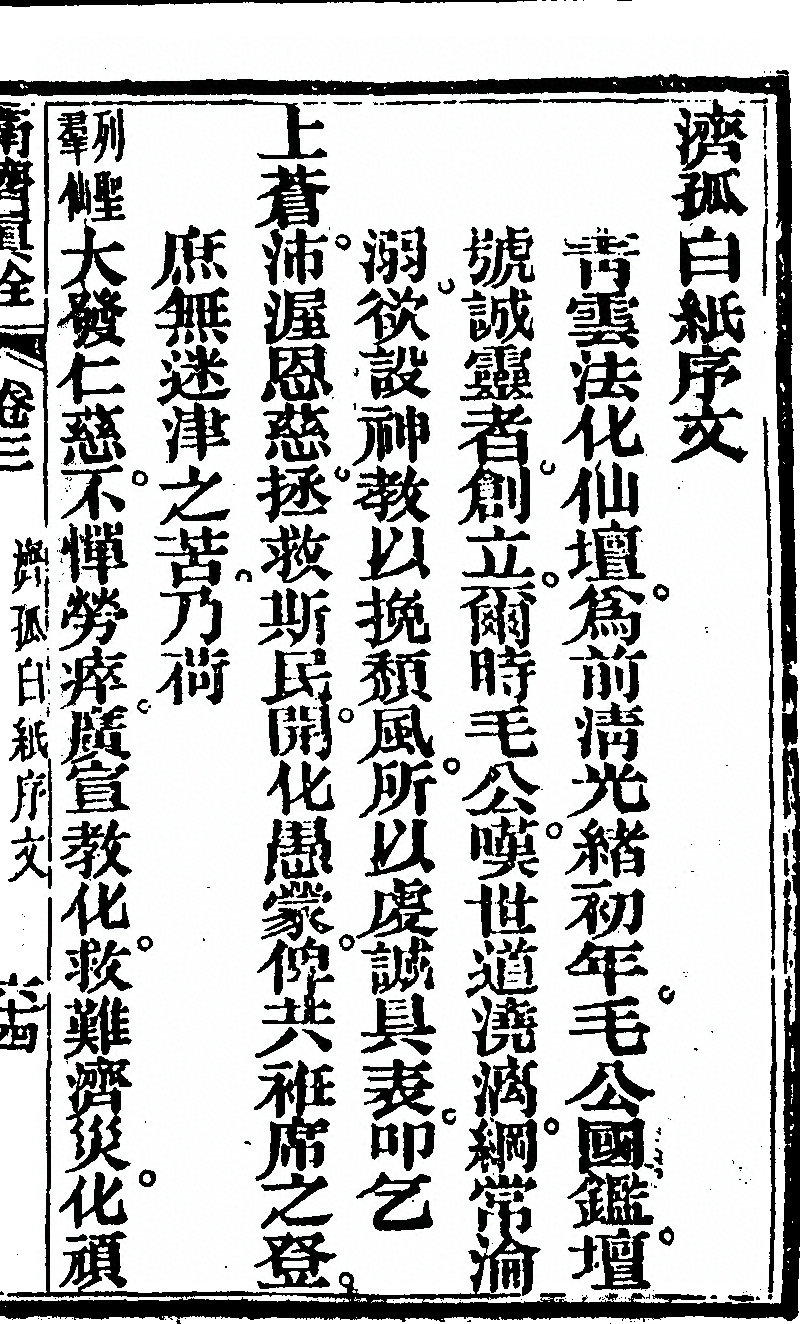 濟孤白紙序文
青雲法化仙壇。爲前淸光緒初年。毛公國鑑。壇
號誠靈者。創立。爾時毛公。嘆世道澆漓。綱常淪
溺。欲設神教以挽頽風。所以虔誠具表。叩乞
上蒼。沛渥恩慈。拯救斯民。開化愚蒙。俾共袵席之登。
庶無迷津之苦。乃荷
列聖
羣仙
大發仁慈。不憚勞瘁。廣宣教化。救難濟災。化頑
卷三
濟孤白紙序文
六十四